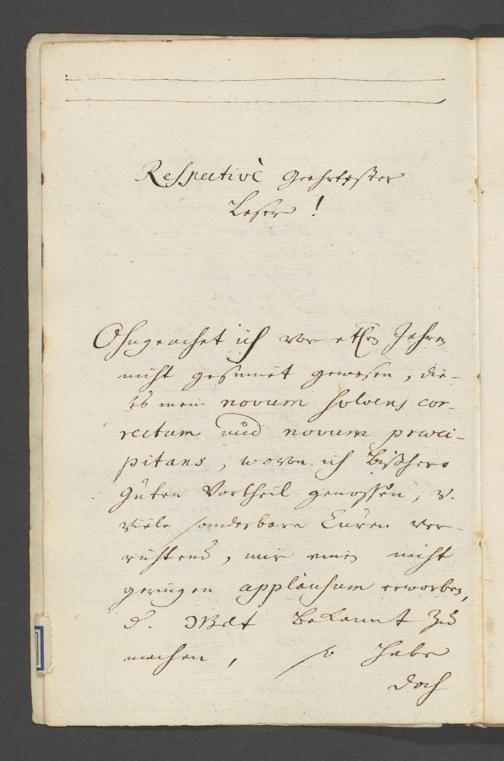 Respectivè Geehrtester
Leser!
Ohngeachet ich vor etlen Jahren
nicht gesinnet gewesen, die-
ses mein novum solvens cor-
rectum und novum praeci-
pitans, wovon ich bißhero
guten Vortheil genossen, v.
viele sonderbare Curen ver-
richtend, mir einen nicht
geringen applausum erworben,
d. Welt bekannt zu
machen, so habe
doch